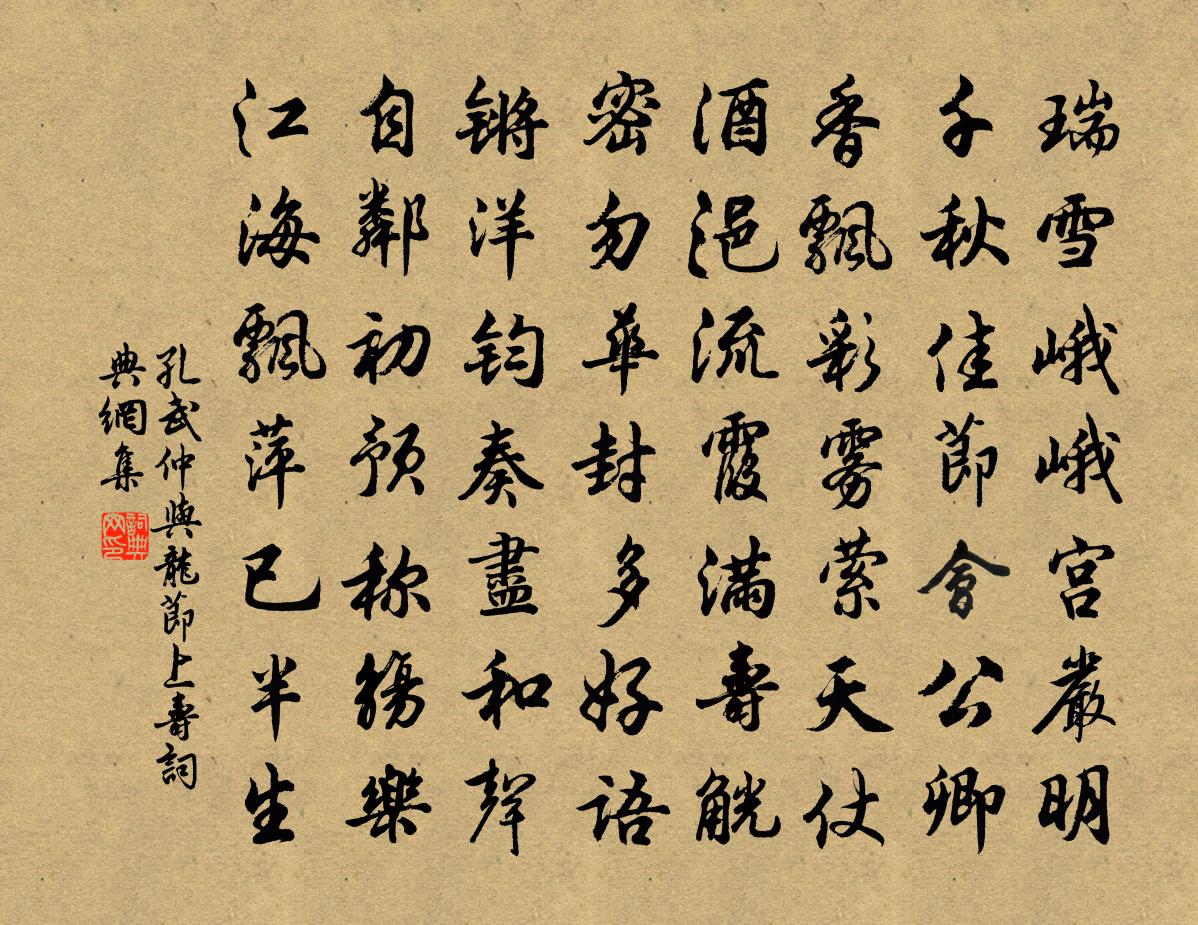 瑞雪峨峨宫嚴明
千秋佳節會公卿
香飄彩雾萦天仗
酒浥流霞滿壽觥
密勿華封多好語
锵洋钧奏盡和聲
自鄰初预称觴樂
江海飄萍已半生
孔武仲興龍節上壽詞
典網集
詞典网印